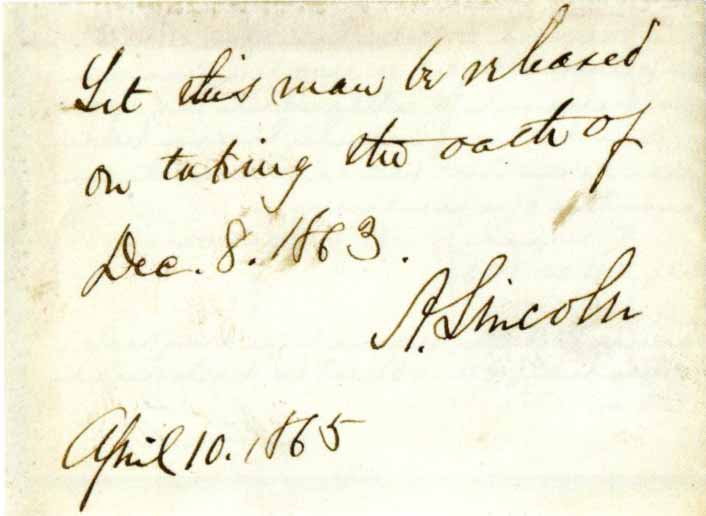 Let this man be released
on taking the oath of
Dec. 8. 1863.
A. Lincoln
April 10. 1865